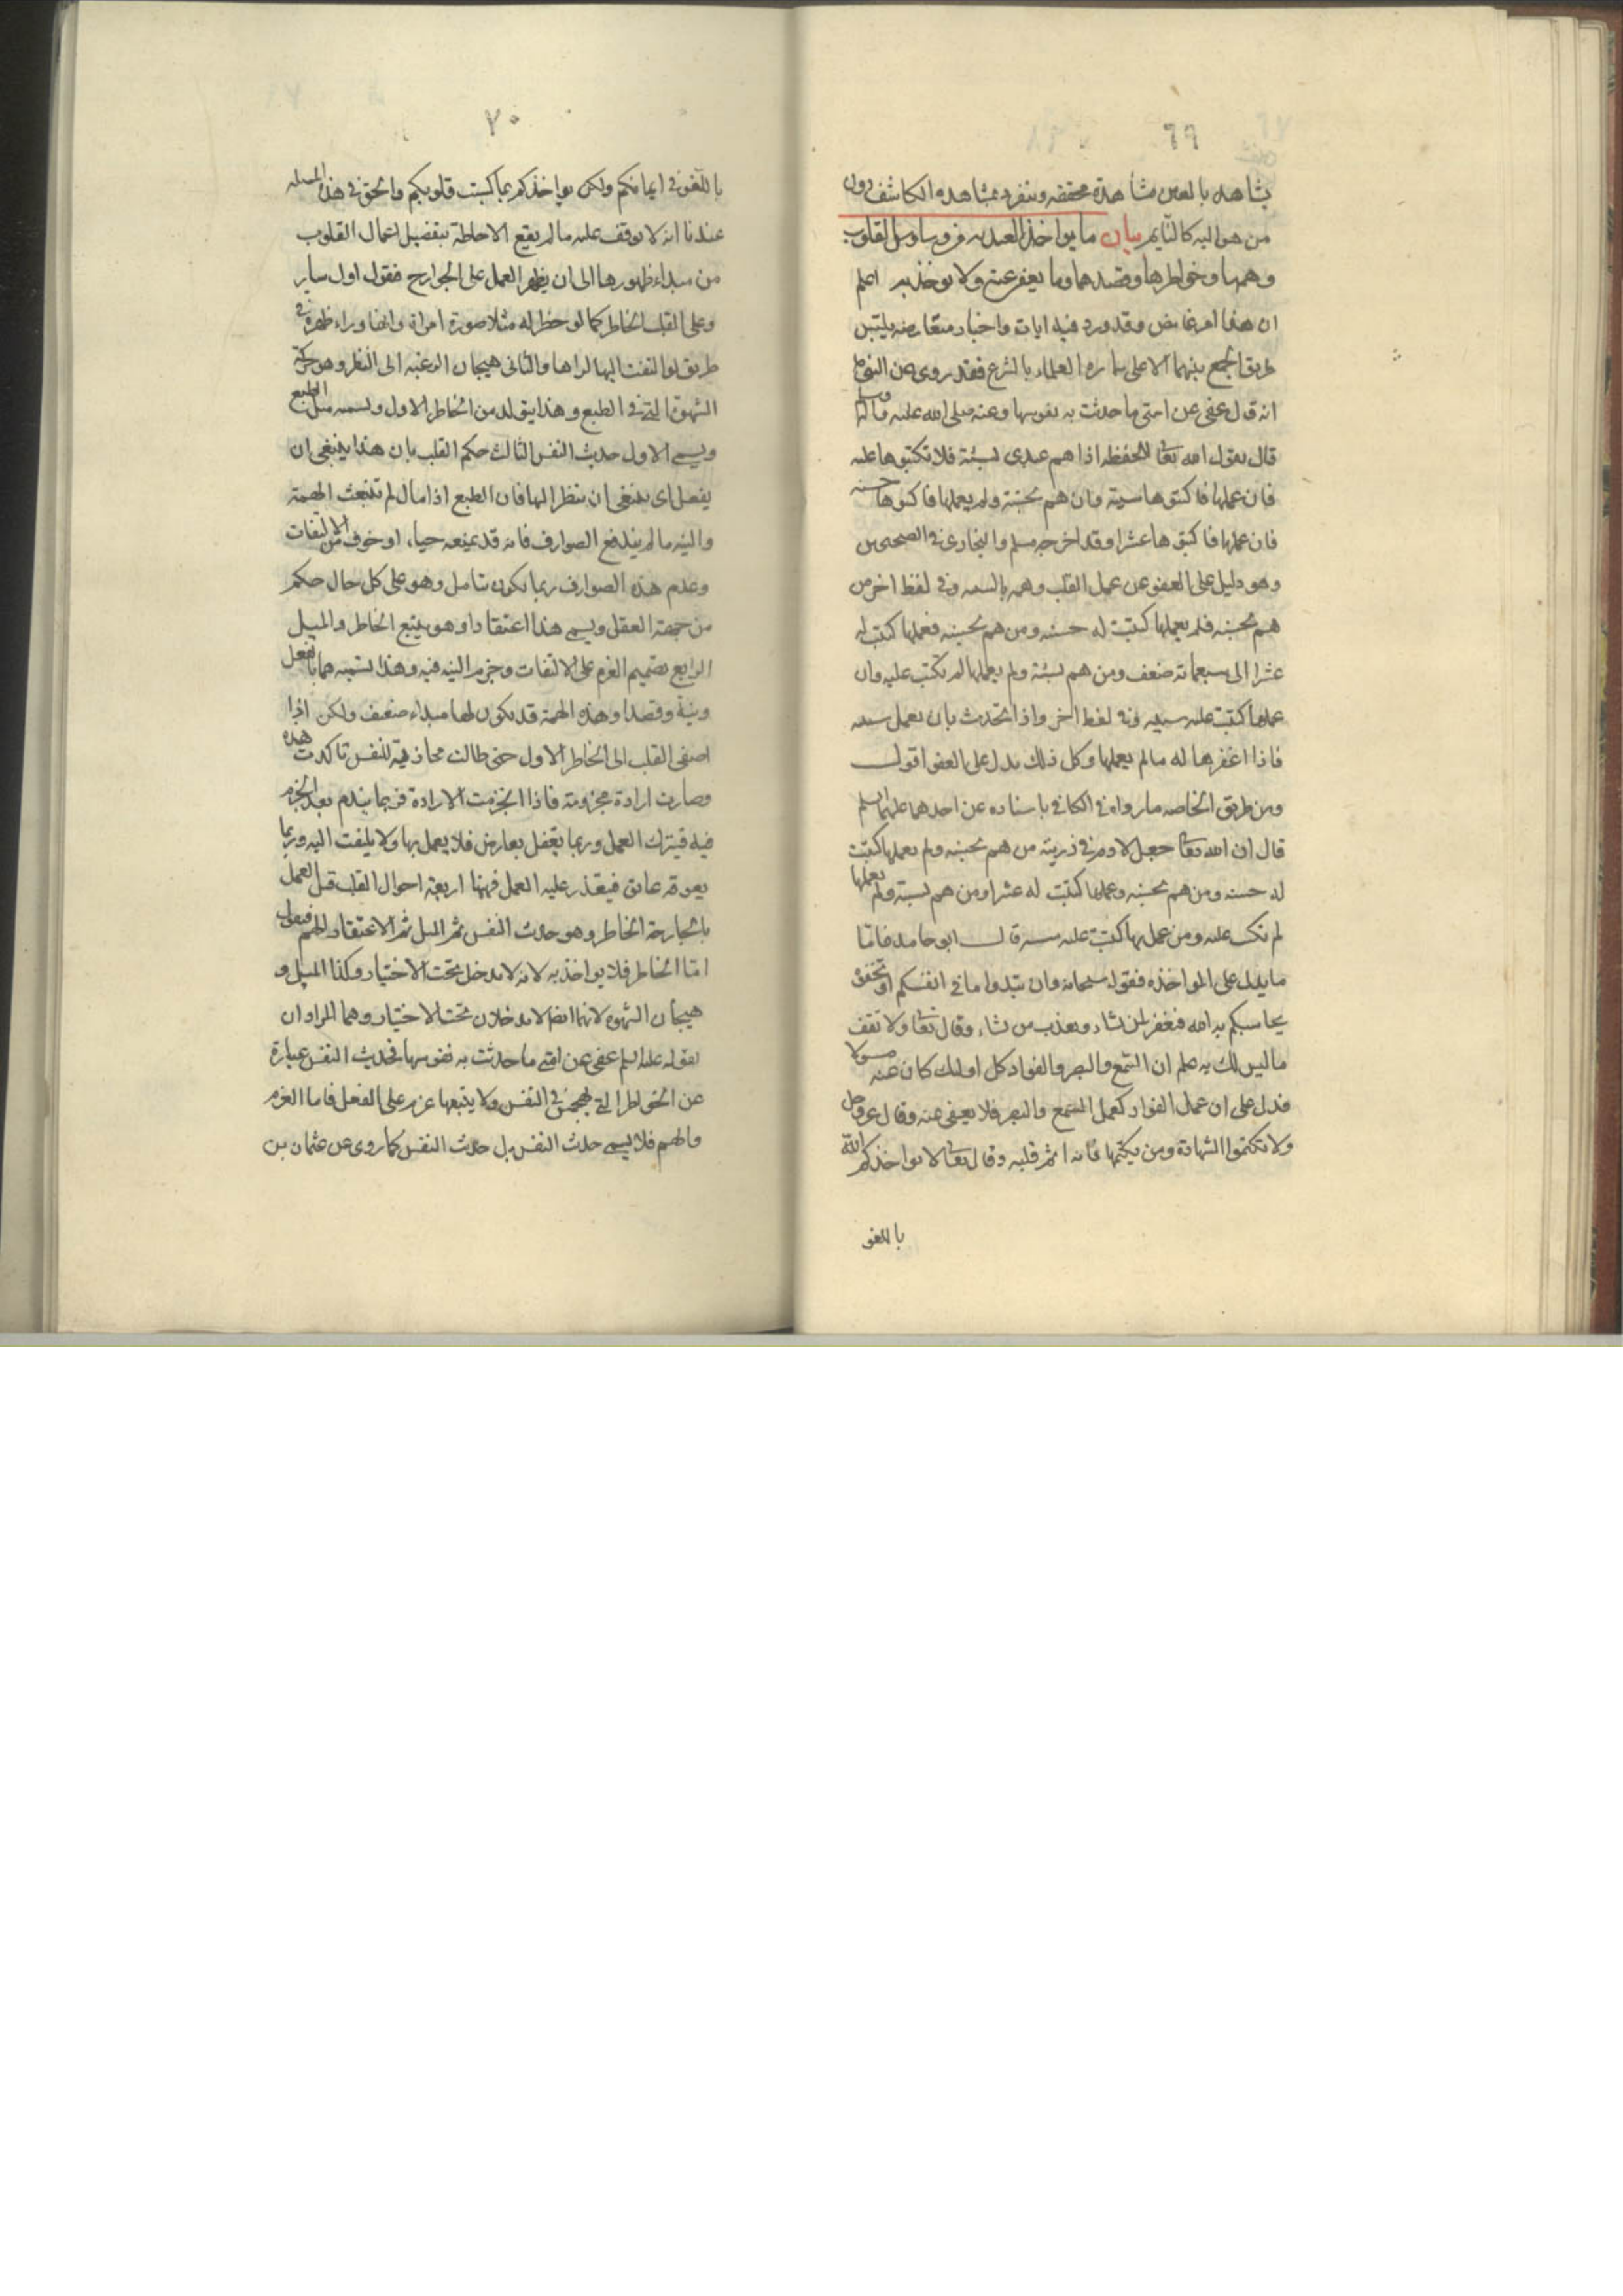 ٦٩
يشاهد بالعين مشاهدة محققه وينفرد بمشاهده المكاشف دون
من هو اليه كالنايم بيان ما يواخذ العبد به من وساوس القلوب
وهمها وخواطرها وقصدها وما يعفى عنه ولا يوخذ به اعلم
ان هذا امر غامض وقد ورد فيه ايات واخبار متعارضه يلتبس
طريق الجمع بينهما الا على سماسره العلماء بالشرع فقد روى عن النبى
انه قال عفى عن امتى ما حدثت به نفوسها وعنه صلى الله عليه وسلم
قال يقول الله تعا للحفظه اذا هم عبدى بسيئة فلا تكتبوها عليه
فان عملها فاكتبوها سيئة وان هم بحسنة ولم يعملها فاكتبوها حسنه
فان عملها فاكتبوها عشرا وقد اخرجه مسلم والبخارى فى الصحيحين
وهو دليل على العفو عن عمل القلب وهمه بالسيئه وفى لفظ اخر من
هم بحسنه فلم يعملها كتبت له حسنه ومن هم بحسنه فعملها كتبت له
عشرا الى سبعمائة ضعف ومن هم بسيئة ولم يعملها لم تكتب عليه وان
عملها كتبت عليه سيئه وفى لفظ اخر واذا تحدث بان يعمل سيئه
فانا اغفرها له ما لم يعملها وكل ذلك يدل على العفو اقول
ومن طريق الخاصه ما رواه فى الكافى باسناده عن احدهما عليهما السلم
قال ان الله تعا جعل لادم فى ذريته من هم بحسنه ولم يعملها كتبت
له حسنه ومن هم بحسنه وعملها كتبت له عشرا ومن هم بسيئة ولم يعملها
لم تكتب عليه ومن عمل بها كتبت عليه سيئه قال ابو حامد فاما
ما يدل على المواخذه فقوله سبحانه وان تبدوا ما فى انفسكم او تخفوه
يحاسبكم به الله فيغفر لمن يشاء ويعذب من يشاء وقال تعا ولا تقف
ما ليس لك به علم ان السمع والبصر والفواد كل اولئك كان عنه مسولا
فدل على ان عمل الفواد كعمل السمع والبصر فلا يعفى عنه وقال عز وجل
ولا تكتموا الشهادة ومن يكتمها فانه اثم قلبه وقال تعا لا يواخذكم الله
باللغو
٧٠
باللغو فى ايمانكم ولكن يواخذكم بما كسبت قلوبكم والحق فى هذه المسله
عندنا انه لا يوقف عليه ما لم يقع الاحاطة بتفصيل اعمال القلوب
من مبداء ظهورها الى ان يظهر العمل على الجوارح فنقول اول ما ير
د على القلب الخاطر كما لو خطر له مثلا صورة امراة وانها وراء ظهره فى
طريق لو التفت اليها لراها والثانى هيجان الرغبه الى النظر وهو حركة
الشهوة التى فى الطبع وهذا يتولد من الخاطر الاول ويسميه ميل الطبع
ويسمى الاول حديث النفس الثالث حكم القلب بان هذا ينبغى ان
يفعل اى ينبغى ان ينظر اليها فان الطبع اذا مال لم تنبعث الهمة
والنيه ما لم يندفع الصوارف فانه قد يمنعه حياء او خوف من الالتفات
وعدم هذه الصوارف ربما يكون بتامل وهو على كل حال حكم
من جهة العقل ويسمى هذا اعتقادا وهو يتبع الخاطر والميل
الرابع تصميم العزم على الالتفات وجزم النيه فيه وهذا نسميه هما بالفعل
ونية وقصدا وهذه الهمة قد يكون لها مبداء ضعيف ولكن اذا
اصغى القلب الى الخاطر الاول حتى طالت محاذبته للنفس تاكدت هذه
وصارت ارادة مجزومة فاذا انجزمت الارادة فربما يندم بعد الجزم
فيه فيترك العمل وربما يغفل بعارض فلا يعمل بها ولا يلتفت اليه وربما
يعوقه عائق فيتعذر عليه العمل فههنا اربعة احوال القلب قبل العمل
بالجارحة الخاطر وهو حديث النفس ثم الميل ثم الاعتقاد ثم الهم فنقول
اما الخاطر فلا يواخذ به لانه لا يدخل تحت الاختيار وكذا الميل و
هيجان الشهوه لانهما ايضا لا يدخلان تحت الاختيار وهما المرادان
بقوله عليه السلم عفى عن امتى ما حدثت به نفوسها فحديث النفس عبارة
عن الخواطر التى تهجس فى النفس ولا يتبعها عزم على الفعل فاما العزم
والهم فلا يسمى حديث النفس بل حديث النفس كما روى عن عثمان بن